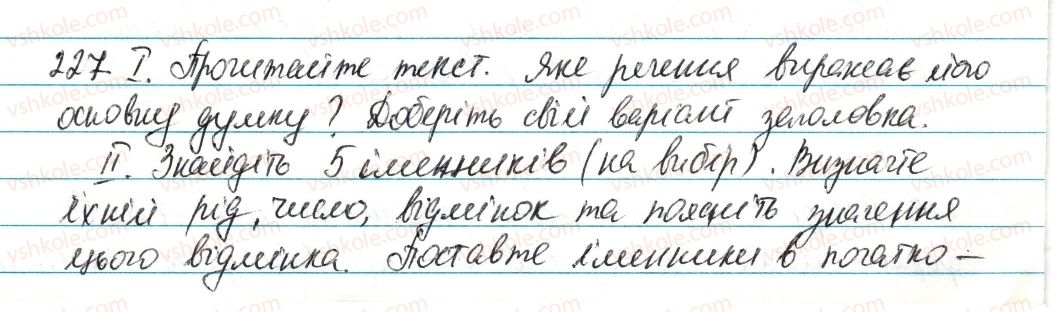 227. I. Прочитайте текст. Яке речення виражає його
основну думку? Доберіть свій варіант заголовка.
II. Знайдіть 5 іменників (на вибір). Визначте
їхній рід, число, відмінок та поясніть значення
цього відмінка. Поставте іменники в початко-